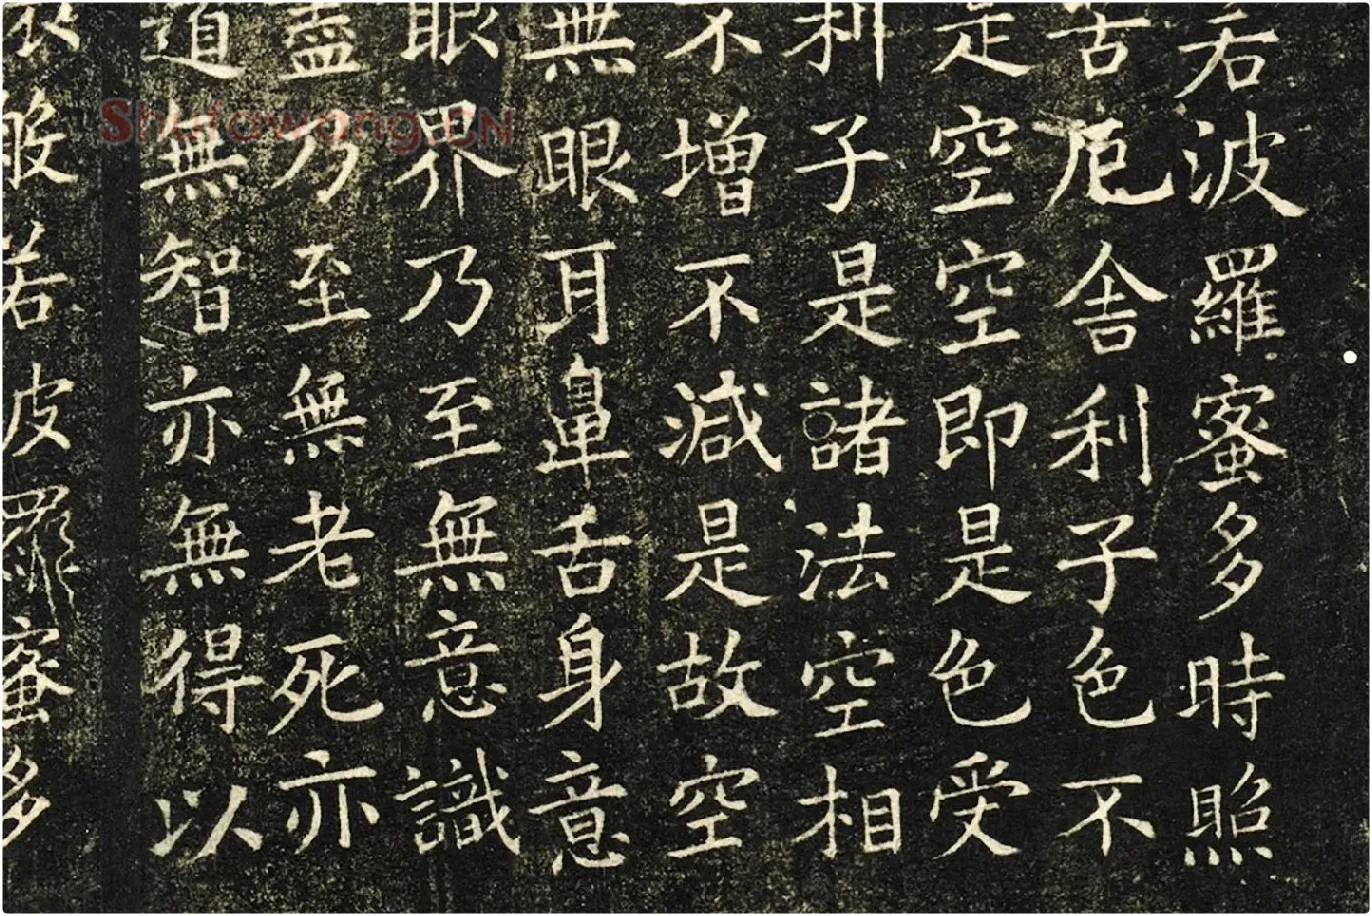 若波羅蜜多時照
苦厄舍利子色不
是空空即是色受
利子是諸法空相
不增不減是故空
無眼耳鼻舌身意
眼界乃至無意識
盡乃至無老死亦
道無智亦無得以
般若波羅蜜多
Shufawang.CN